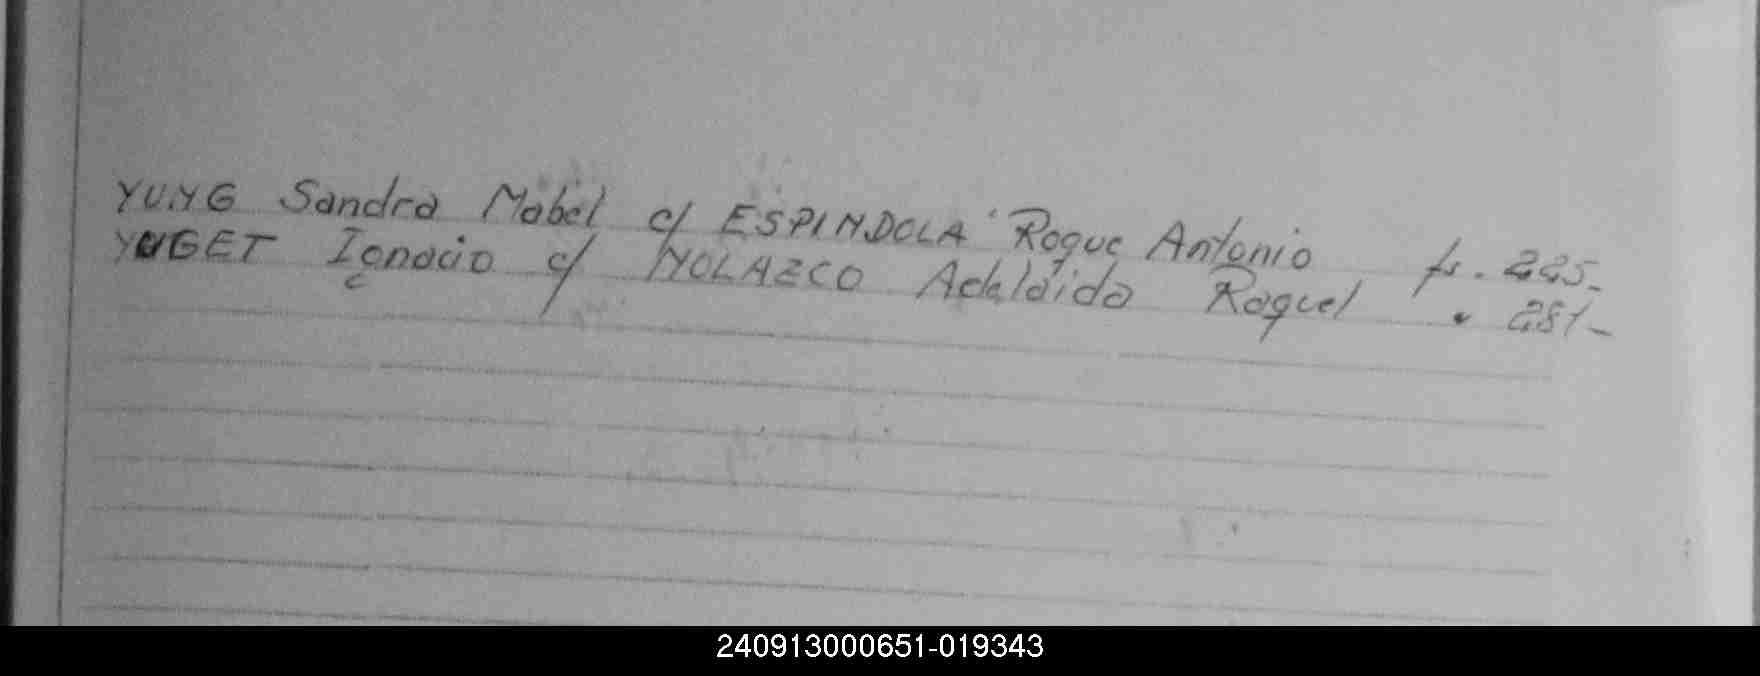 YUNG Sandra Mabel c/ ESPINDOLA Roque Antonio fs. 225-
YUGET Ignacio c/ NOLAZCO Adelaida Raquel " 281-
240913000651-019343